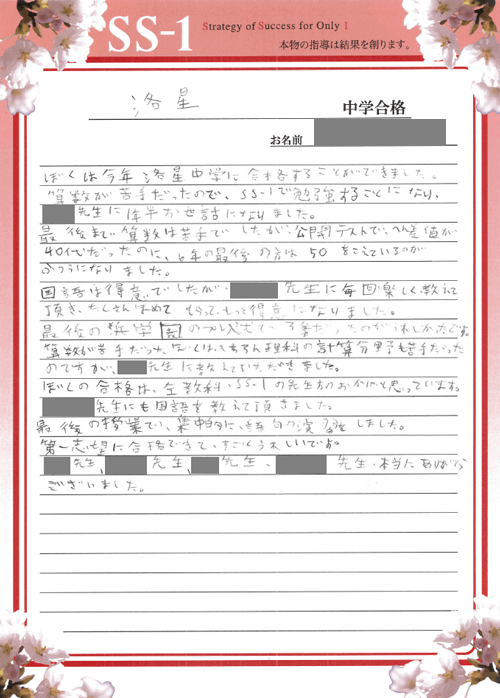 SS-1
Strategy of Success for Only 1
本物の指導は結果を創ります。
洛星
中学合格
お名前
ぼくは今年洛星中学に合格することができました。
算数が苦手だったので、SS-1で勉強することになり、
先生に1年半お世話になりました。
最後まで算数は苦手でしたが、公開テストで、偏差値が
40代だったのに、6年の最後の方は50をこえているのが
ふつうになりました。
国語は得意でしたが、先生に毎回楽しく教えて
頂き、たくさんほめてもらって、もっと得意になりました。
最後の
算数が苦手だったぼくは、もちろん理科の計算分野も苦手だった
のですが、先生に教えていただきました。
ぼくの合格は、全教科、SS-1の先生方のおかげと思っています。
先生にも国語を教えて頂きました。
最後の授業で、集中的に、の演習しました。
第一志望に合格できて、すごくうれしいです。
先生、先生、先生、先生、本当にありがとう
ございました。